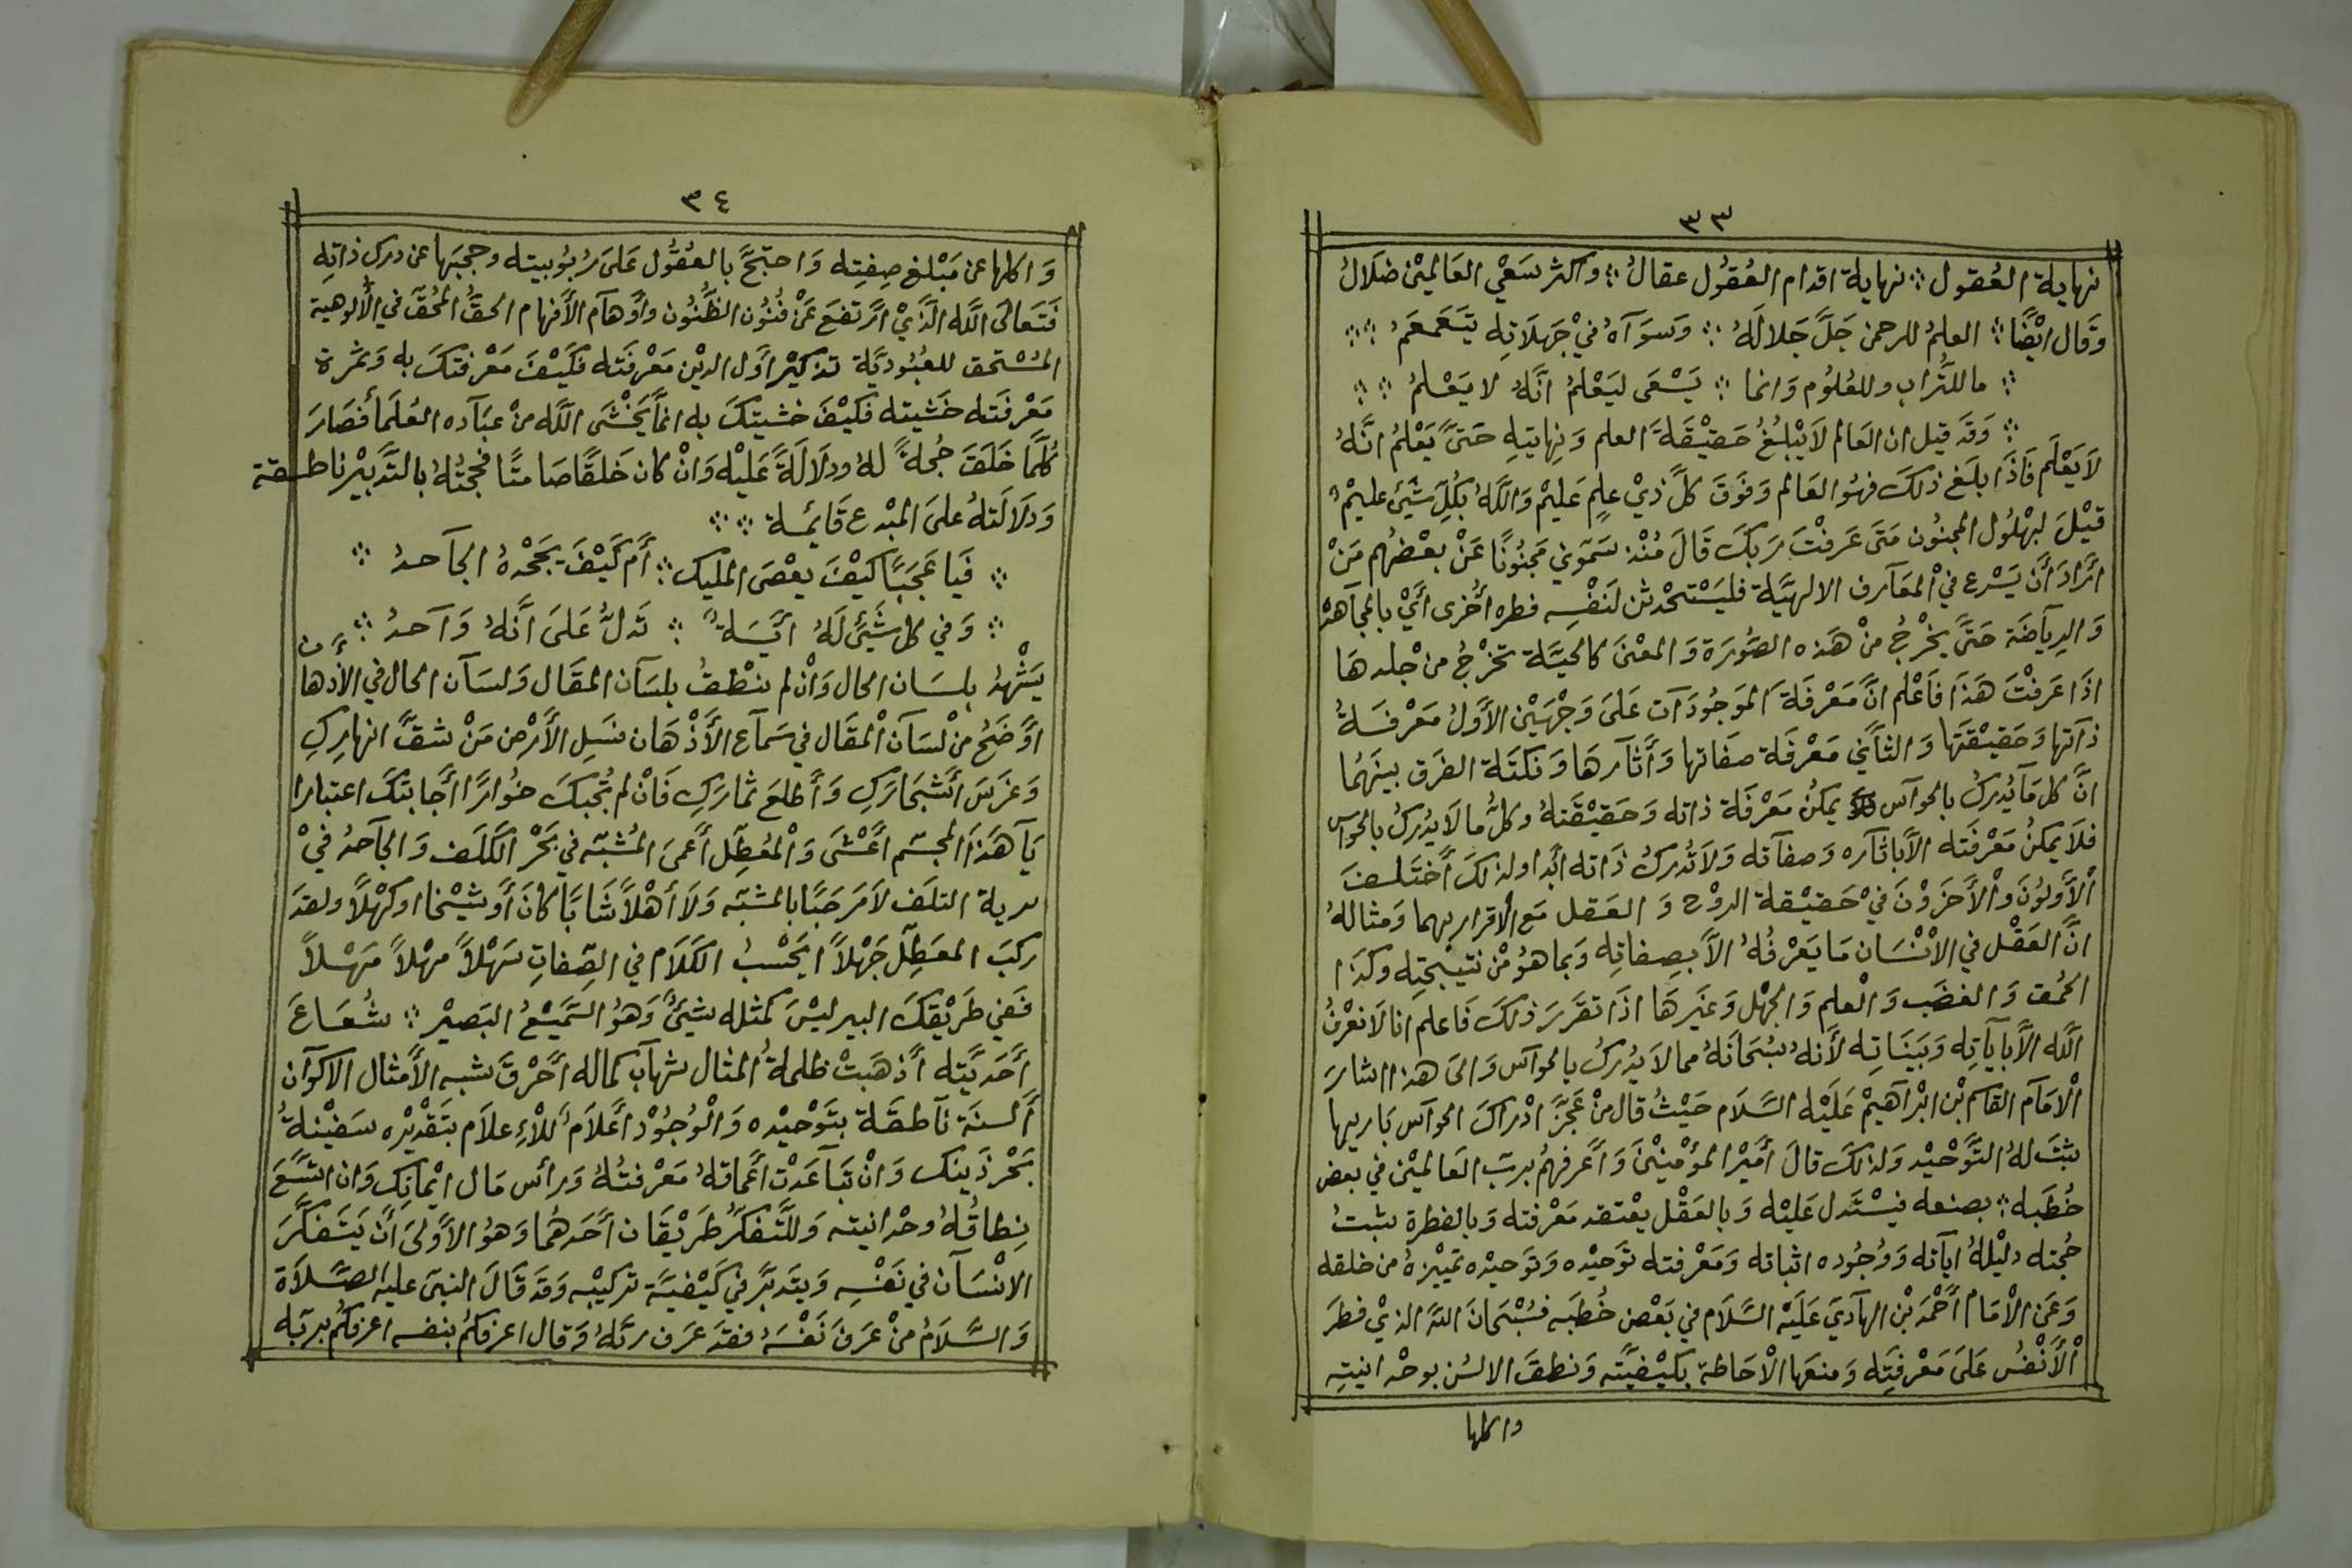 ٣٣
نهاية العُقول ؞ نهاية اقدام العُقُول عقالُ ؞ واكثر سَعْي العَالميْن ضلَالُ
وقَال ايْضًا ؞ العلمُ للرحمن جَلَّ جَلالَهُ ؞ وَسوَآهُ فيْ جَهلَاتِه يتَغَمغَمُ ؞
؞ ما للتُّراب وللعُلوُم وَانما ؞ يَسْعَى ليَعْلمُ انَّهُ لا يَعْلمُ ؞ ؞
؞ وَقَد قيل ان العَالم لَا يْبلغُ حَقيْقَة العلم وَنِهايتِه حَتىَّ يَعْلمُ انَّهُ
لَا يَعْلَم فَاذَا بلَغ ذلكَ فهُو العَالم وَفَوَقَ كلَّ ذيْ علمٍ عَليمْ وَاللَّهُ بكُلِّ شَيئ عليمْ
قيْلَ لبهْلُول المجنُون مَتىَ عَرفْتَ رَبكَ قَالَ مُنْذ سَمّوَني مَجنُونًا عَنْ بعْضهُم مَنْ
ارَّادَ أَن يَسْرع فيْ المعَآرف الالهيَّة فليَسْتحْدثن لنَفْسِه فطره أُخرى أَيْ بالمجآهدْ
وَالرِياَضَة حَتىَّ يَخْرجُ منْ هَذه الصَّوُرَة وَالمعْنىَ كالحيَّة تَخرْجُ من جْلدهَا
اذَا عَرفْتَ هَذَا فاَعْلم انَّ مَعْرفَة الموَجُودَآت عَلىَ وَجْهَيْن الأَوَّلُ مَعْرفَةُ
ذاتها وَحَقيْقتَها وَالثاَّني مَعْرفَة صفَاتها وَأَثاَرهَا وَنكتَة الفَرق بينَهُما
انَّ كل مَا يُدركُ بالحوآس يمكنُ مَعْرفَة ذاته وَحَقيْقَتهُ وكلُّ ما لَا يُدركُ بالحوآس
فلَا يمكنُ مَعْرفَته الَّا باثآره وَصفآته وَلَا تُدركُ ذَاته ابَدا ولذلكَ أَختَلفَ
اْلأَوَّلوُنَ وْالأَخَروْنَ فيْ حَقيْقة الروْح وَ العَقل مَع الاقرار بهما وَمثالهُ
انَّ العَقْل في الاْنْسَان مَا يَعْرفُهُ الَّا بصِفاتِه وَبما هوُ منْ نتيْجتِه وكذَا
الحمُق وَ الغضَب وَ اْلعلم وَ الجهْل وَغيَرهَا اذَا تقَررَ ذلكَ فَاعلم انا لَا نعْرفُ
اللَّه الَّا بآيآتِه وَبَيَنَاتِه لأَنهُ سُبْحَانَهُ مما لَا يدُركُ بالحوآس وَالىَ هذا اشارَ
اْلامَام القاسم بْن ابْرآهيمْ عَلَيْه السَّلَام حَيْثُ قال منْ عَجَّز ادْرَاكَ الحوآس بَاريهاَ
ثبتَ لهُ التَّوْحيْد ولذلكَ قالَ أَميْر المؤْمنيْنَ وَأَعرفهُم برَبّ العَالميْن في بعض
خُطَبه ؞ بصنعه يَسْتَدل عَليْه وَبالعَقْل يعْتقد مَعْرفته وَبالفطرة يثبتُ
حُجته دليْلهُ ايآته وَوُجُوده اثباته وَمَعْرفته توَحيْده وَتوَحيْده تَميْيزهُ من خلقه
وَعَن الاْمَام أَحْمَد بْن الهآديَ عَلَيْه السَّلَام في بَعْض خُطَبه فسُبْحَانَ اللَّه الذيْ فطرَ
اْلأَنْفُس عَلىَ مَعْرفِته وَمنعَها الاْحَاطة بكيْفيَّته وَنطقَ الالسُن بوحْدانيتِه
واكلها
٣٤
وَاكلها عن مَبْلغ صِفِته وَاحتجَّ بالعُقُول عَلىَ رُبوُبيته وحجبَها عن درك ذاتِه
فتَعَالىَ اللَّه الَّذيْ ارَّتفعَ عَنْ فنُوُن الظنُوُن وأَوْهآم الأَفهام الحقُّ المحُقّ في الألوهية
المسُتحق للعبُودَيَّة تذكيْر أوَل الديْن مَعْرفَته فكَيْفَ مَعْرفتكَ به وَثمَرة
مَعْرفَته خَشيته فكيْفَ خشيتكَ به انمَّا يَخْشَى اللَّه منْ عبَآده العُلَماَ فَصَارَ
كُلَّما خَلَقَ حُجةً لهُ ودلَالَةً عَليْه وَانْ كان خَلقًا صَامتًا فحجتُهُ بالتَّدبيْر ناطقة
وَدلَالَتهُ علىَ المبْدع قَائمة ؞ ؞
؞ فيَا عَجَبًا كيْفَ يعْصَى المليك ؞ أَم كَيْفَ يَجَحْدهُ الجآحدُ ؞
؞ وَفي كل شَيْئ لَهُ ايَّةً ؞ تَدلُّ عَلىَ أَنَّهُ وَآحدُ ؞
يَشْهدُ بلسَان الحال وَانْ لم ينْطقُ بلسآن المقَال وَلسَآن الحال في الأذْهان
اوَّضَحُ منْ لسَآن المقَال في سَمآع الأَذْهَان فسَلِ الأَرْض مَنْ شقَّ انهارِكِ
وَغرَسَ أَشْجَارَكِ وَأَطلعَ ثمارَكِ فَانْ لم تُجبْكَ حوَارًا أَجَابتكَ اعتبارا
يَآ هَذَا المجسّم أَعْشىَ وَاْلمُعطّل أَعمىَ المُشبّه في بَحْر الكَلَف وَ الجآحدُ فيْ
برية التلَف لَا مَرحَبًا بالمشبّه وَلَا أَهْلاً شَابًا كَانَ أَو شيْخا اوكهْلاً ولقَد
ركبَ المعَطِّل جَهْلاً ايَحْسبُ الكَلَام في الصِّفاتِ سَهْلاً مهْلاً مَهْلاً
فَفي طَريْقكَ البير ليْسَ كَمثله شيَئٌ وَهُو السَّميْعُ البَصيْر ؞ شُعَاعَ
أَحَديَّته أَذهَبَتْ ظلمةُ المثال شهآب كماله أَحْرقَ شبه الأمثال الاكوَآن
أَلسنَة نَاطقَة بتَوْحيْده وَاْلوُجُوْد أَعْلَامُ للأِعلاَم بتَقْديْره سَفيْنةُ
بَحْر ذَينك وَانْ تبَآعَدتْ أَعْماقهُ مَعْرفتُهُ وَرأس مَال ايْمانِك وَان اتَّسَعَ
نِطاقهُ وحْدانيته وَللتَّفكر طَريْقَان أَحَدهُما وَهوُ الأَولىَ أَن يَتَفكَّرَ
الانْسَآن في نَفْسِه وَيتَدبَّر في كَيْفيَّة تركيْبه وَقدَ قَالَ النبيّ عليه الصَّلَاة
وَ السَّلَامُ منْ عَرفَ نَفْسَهُ فقدَ عَرف ربَّهُ وَقال اعرفكُم بنفسه اعرفكُم برَبِّه